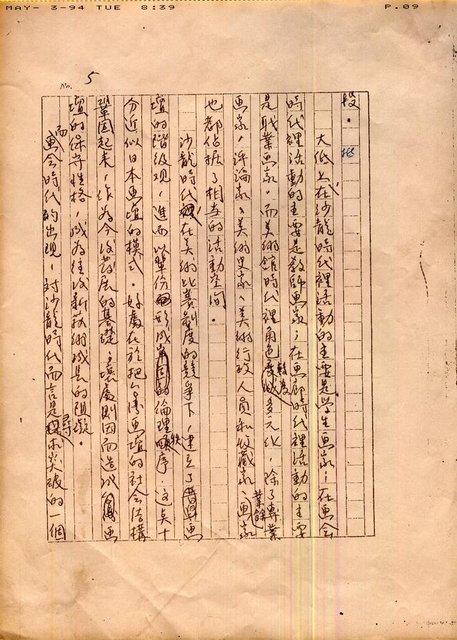 MAY- 3-94 TUE 8:39 P.09
No. 5
段。
大体上在沙龍時代裡活動的主要是學生画家；在画会
時代裡活動的主要是教師画家；在画廊時代裡活動的主要
是職業画家。而美術館時代裡角色轉變成多元化，除了專業
画家，評論家、美術史家、美術行政人員和收藏家、業餘画家
也都佔據了相当的活動空間。
沙龍時代裡在美術比賽制度的競爭下，建立了画壇
的階級观，進而以輩份形成的倫理秩序，这点十
分近似日本画壇的模式。好處在於把台湾画壇的社会结構
鞏固起来，作為今後發展的基礎；壞處則因而造成画
壇的保守性格，成為往後新藝術成長的阻礙。
而画会時代的出現，对沙龍時代而言是尋求突破的一個